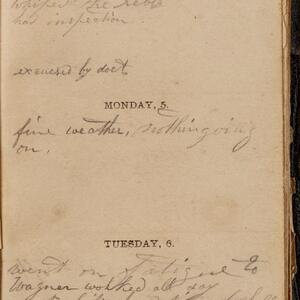 whiped the rebs
has inspection
excused by doct
MONDAY, 5.
fine weather, nothing going
on.
TUESDAY, 6.
went on Fatigue to
Wagner worked all day